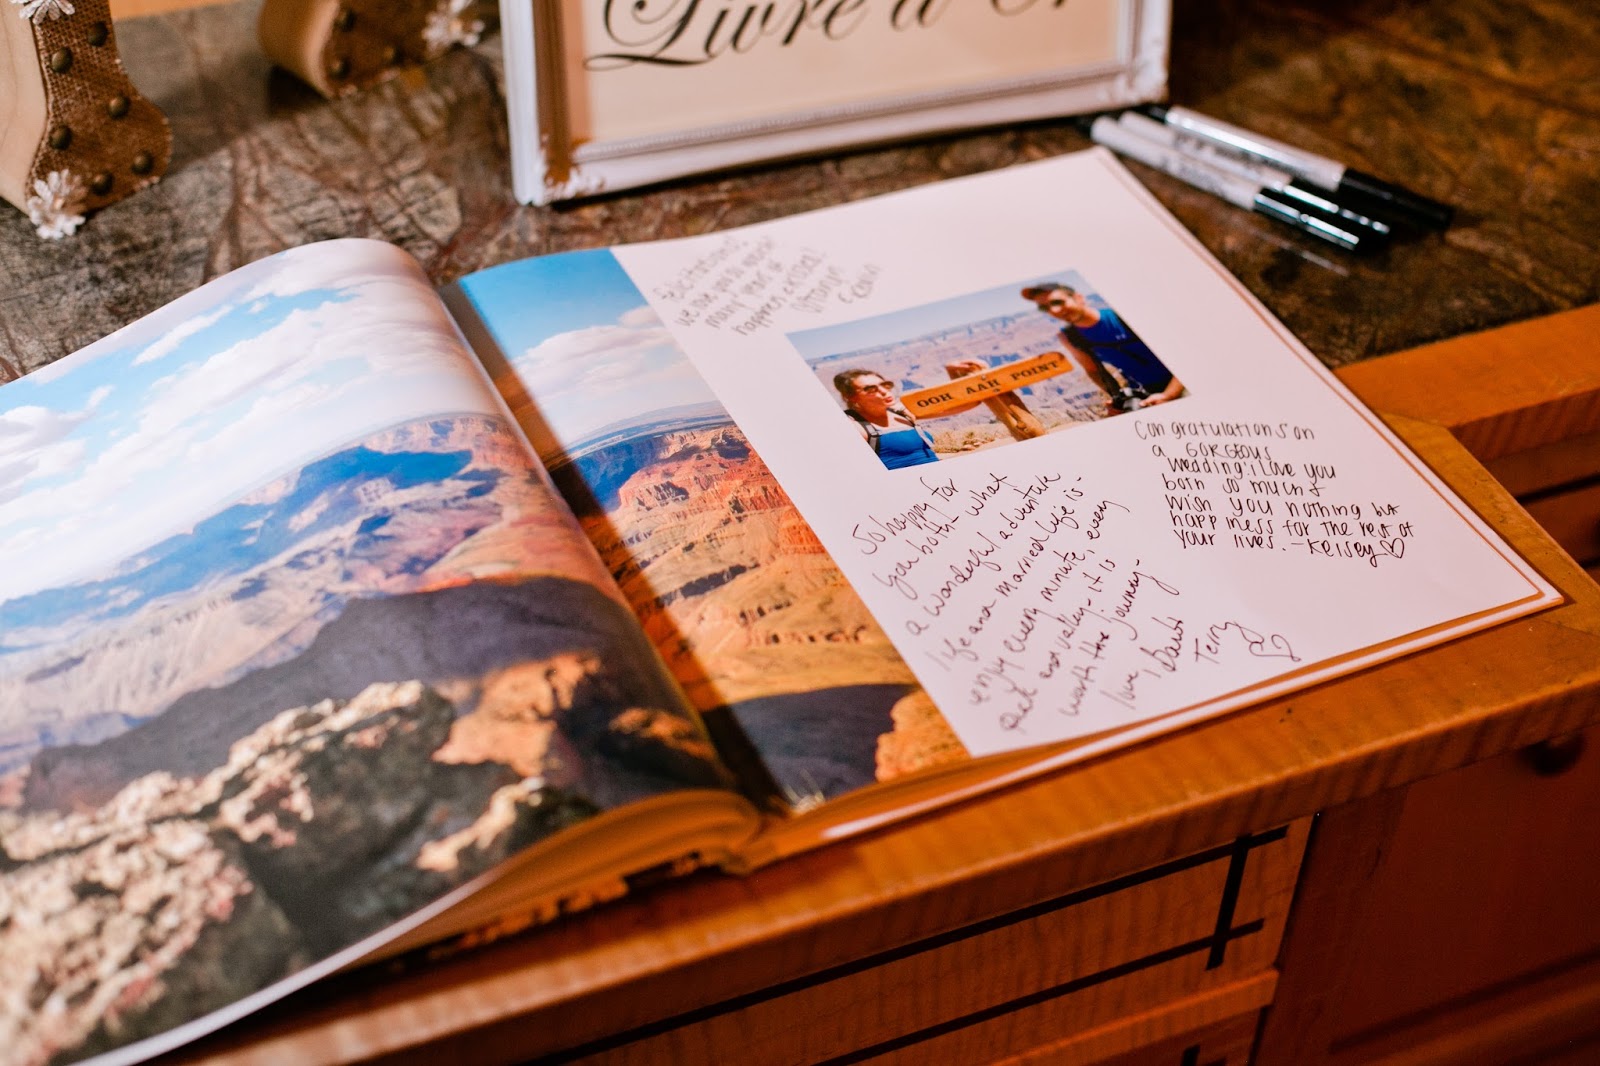 Livre d'Or
Félicitations!
we love you &
many years of
happiness
OOH AAH POINT
Congratulations on
a GORGEOUS
wedding! i love you
both so much &
Wish you nothing but
happiness for the rest of
your lives. - Kelsey ♡
So happy for
you both - what
a wonderful adventure
life and a married life is -
enjoy every minute, every
peak and valley - it is
worth the journey -
love,
Terry ♡